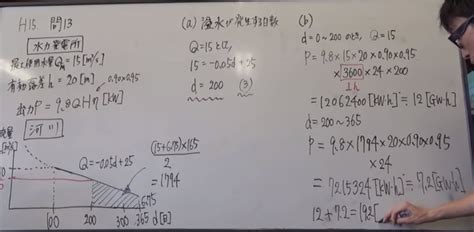 H15. 問13
水力発電所
最大使用水量 Qm = 15 [m³/s]
有効落差 h = 20 [m]
0.90×0.95
出力 P = 9.8QHη [kW]
河川
Q=-0.05d+25
100 200 300 365 d[日]
6.75
(15+6.75)×165
2
=1794
(a) 溢水が発生する日数
Q=15とは、
15=-0.05d+25
d=200 (3)
(b)
d=0~200のとき、Q=15
P=9.8×15×20×0.90×0.95
×3600×24×200
1h
=12062400[kW·h]≒12[GW·h]
d=200~365
P=9.8×1794×20×0.90×0.95
×24
=7215324[kW·h]≒7.2[GW·h]
12+7.2=19.2[